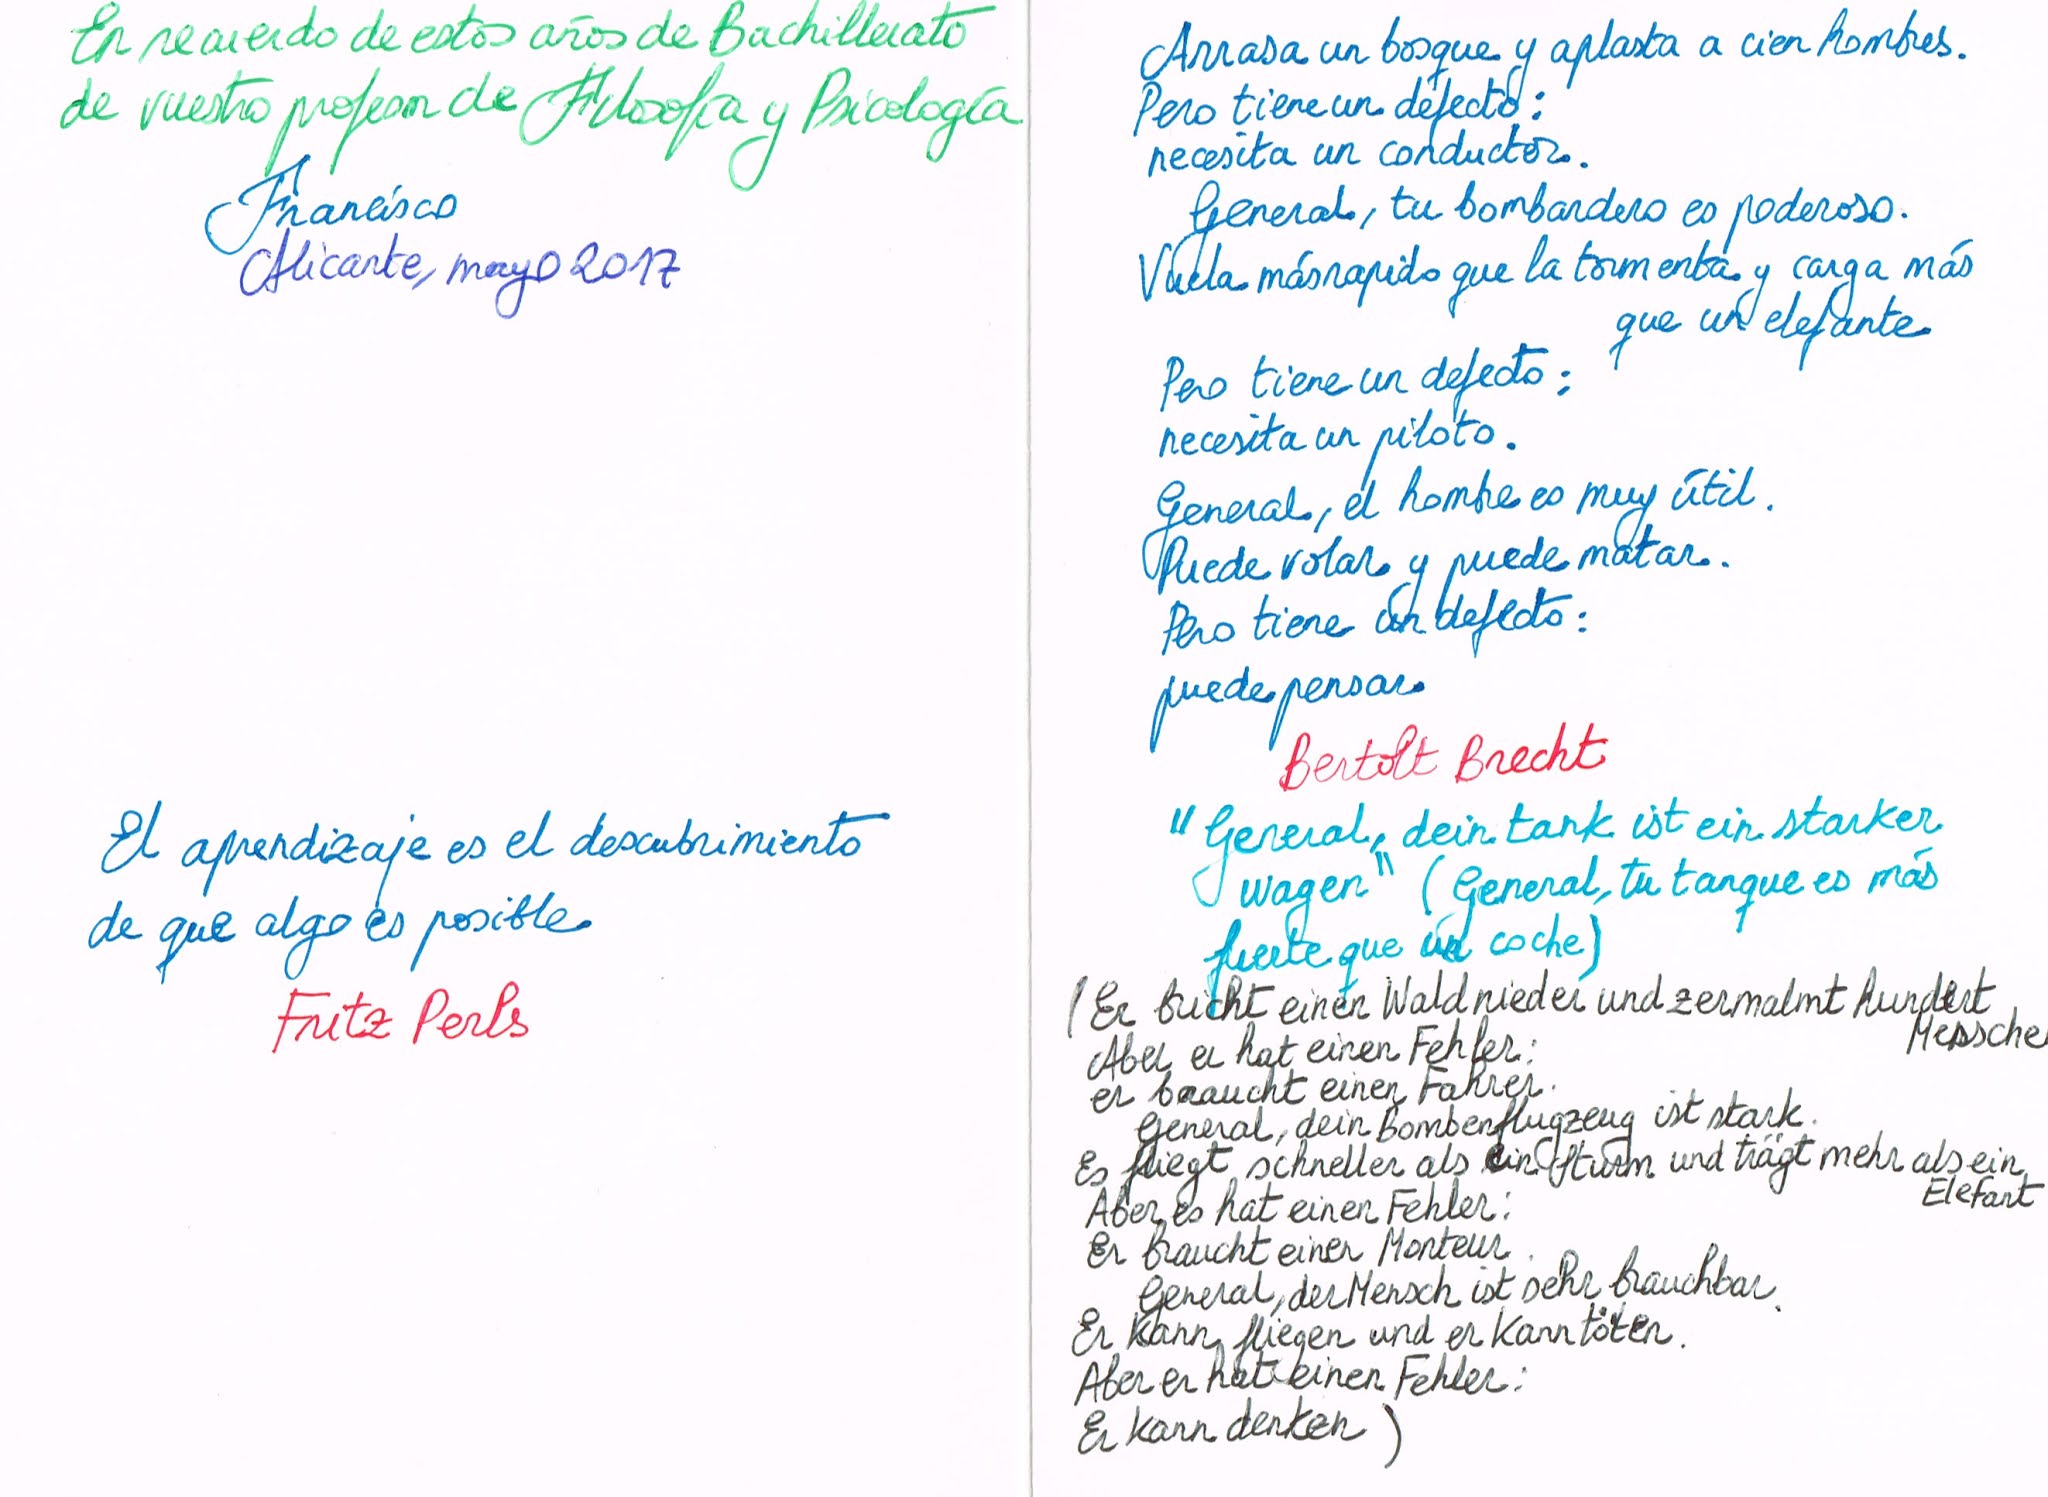 En recuerdo de estos años de Bachillerato
de vuestro profesor de Filosofía y Psicología
Francisco
Alicante, mayo 2017
El aprendizaje es el descubrimiento
de que algo es posible
Fritz Perls
Arrasa un bosque y aplasta a cien hombres.
Pero tiene un defecto:
necesita un conductor.
General, tu bombardero es poderoso.
Vuela más rapido que la tormenta y carga más
que un elefante
Pero tiene un defecto:
necesita un piloto.
General, el hombre es muy útil.
Puede volar y puede matar.
Pero tiene un defecto:
puede pensar
Bertolt Brecht
"General, dein tank ist ein starker
wagen" (General, tu tanque es más
fuerte que un coche)
(Er bricht einen Wald nieder und zermalmt hundert
Mensche
Aber er hat einen Fehler:
er braucht einen Fahrer.
General, dein Bombenflugzeug ist stark.
Es fliegt schneller als ein Sturm und trägt mehr als ein
Elefant
Aber es hat einen Fehler:
Er braucht einer Monteur.
General, der Mensch ist sehr brauchbar.
Er kann fliegen und er kann töten.
Aber er hat einen Fehler:
Er kann denken)